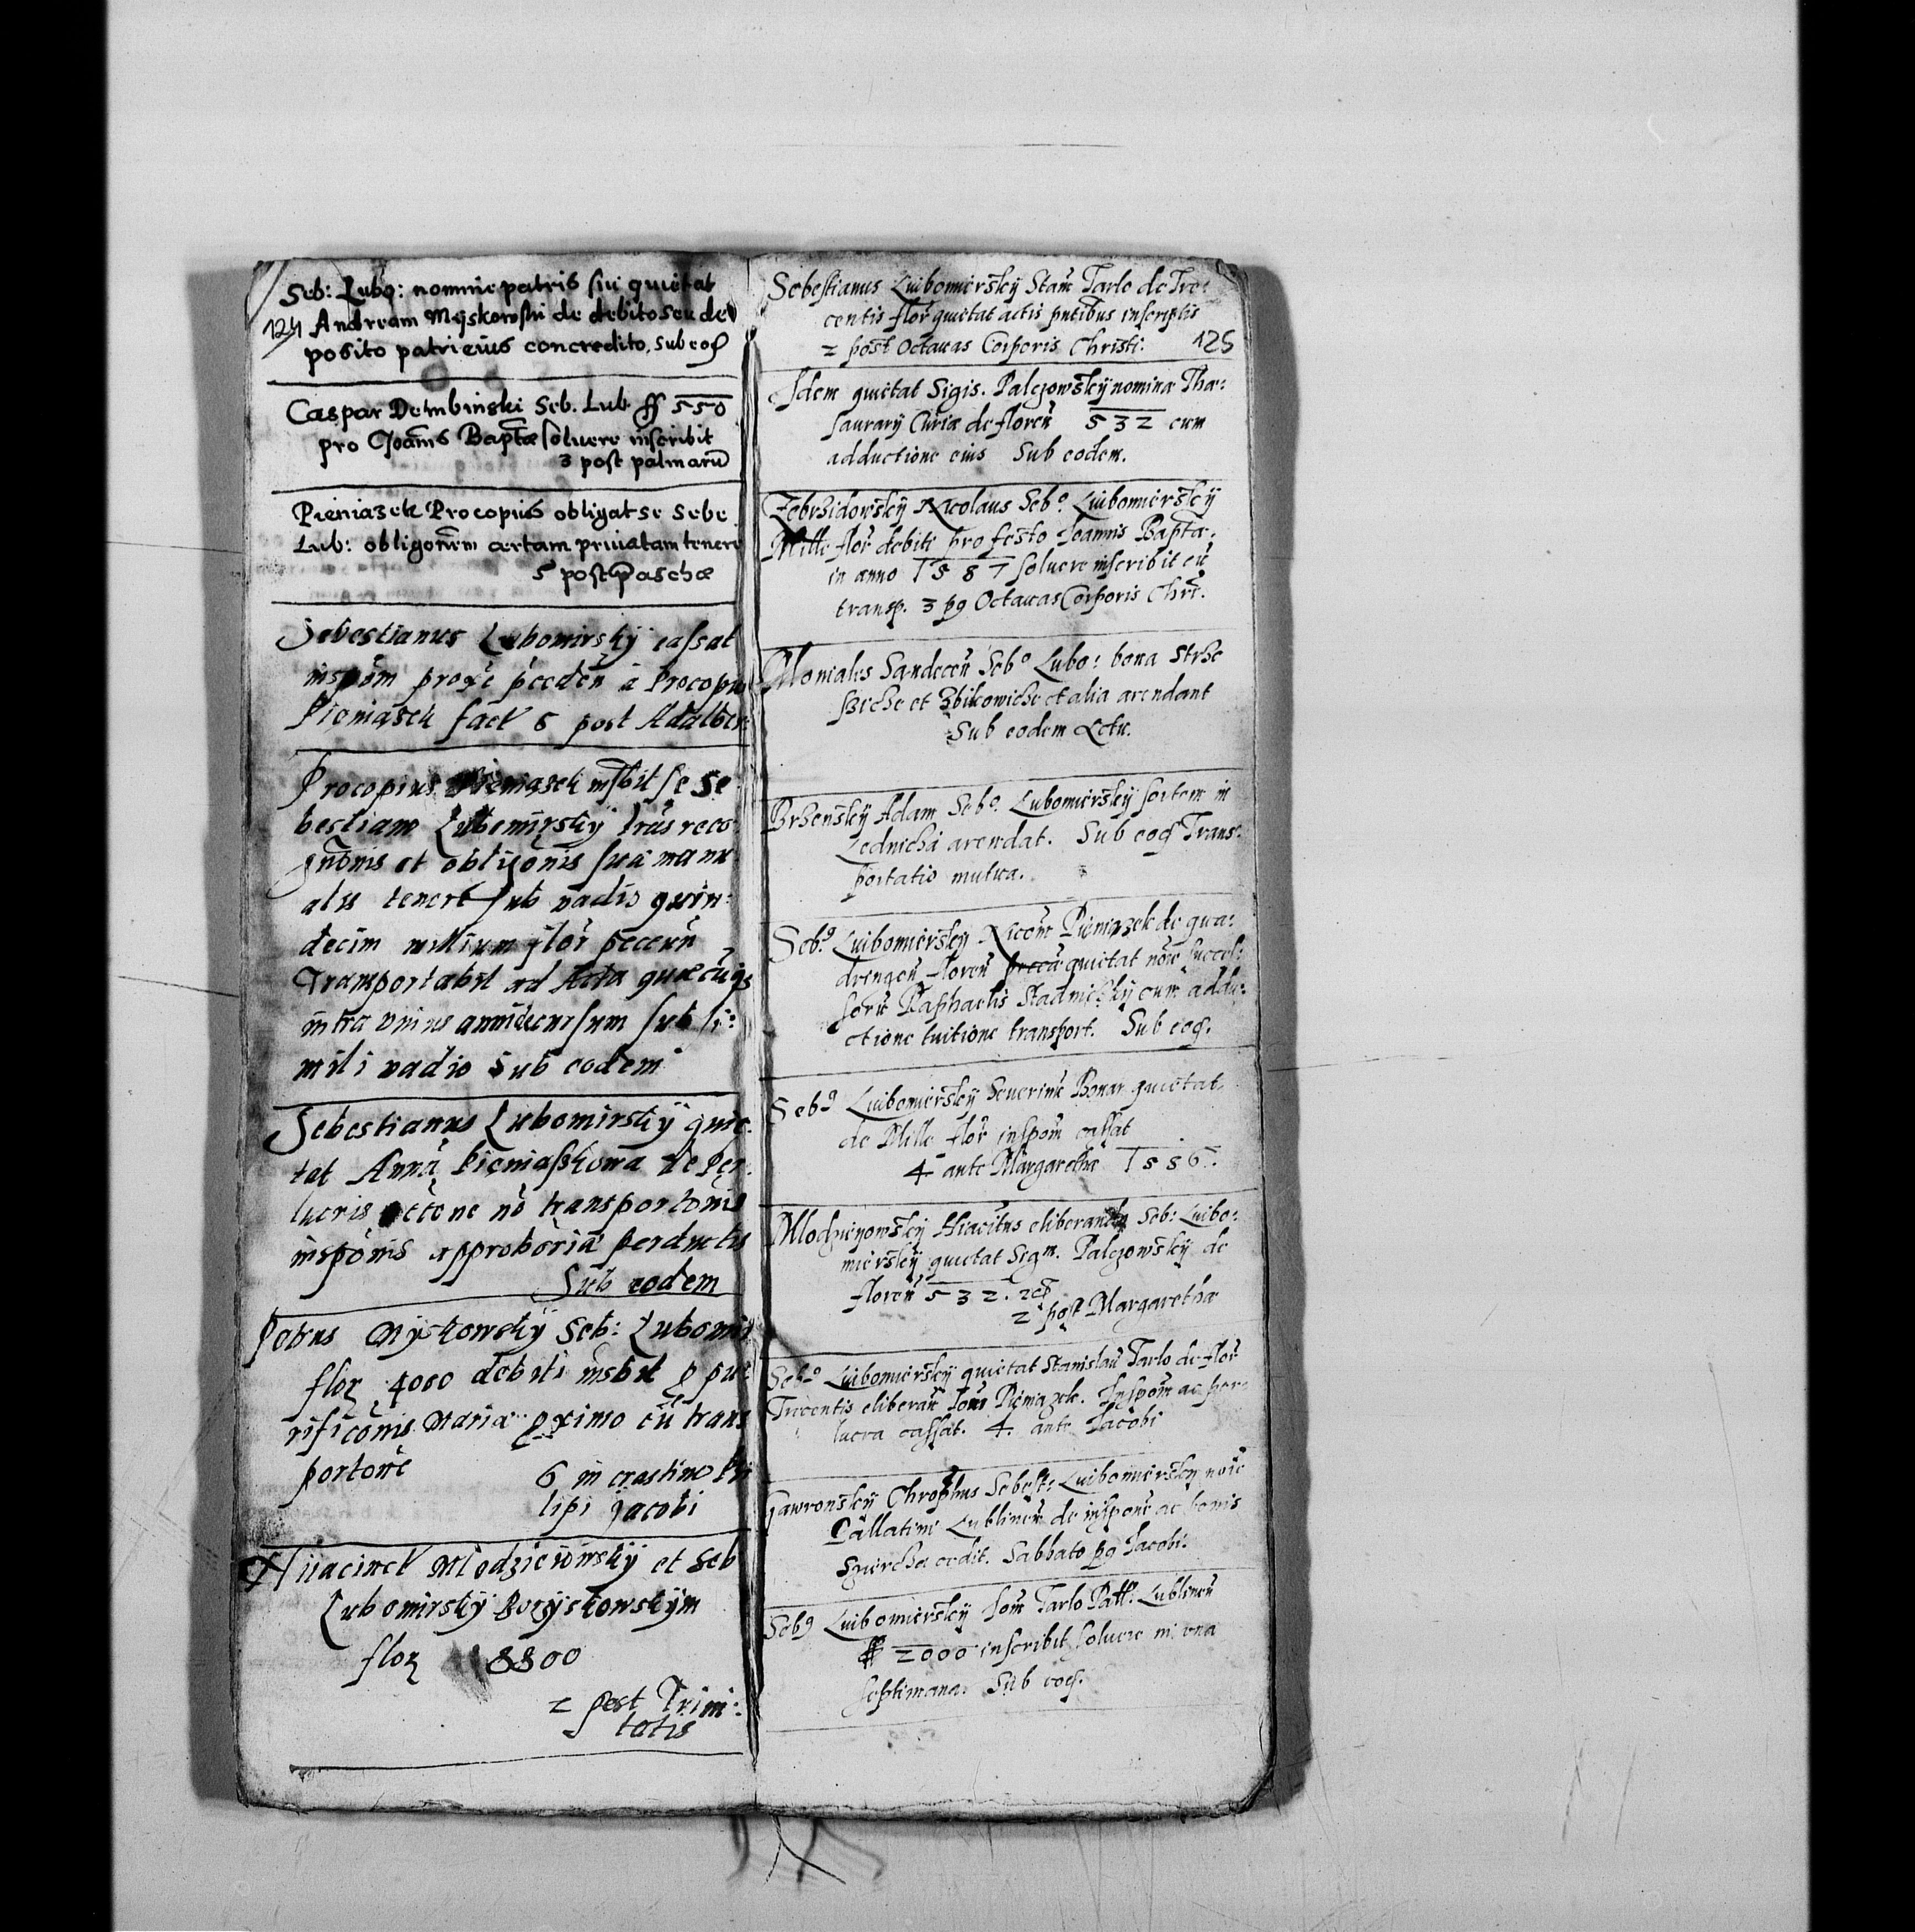 Seb: Lubo: nomine patris sui quietat
124 Andream Myskowski de debito seu de
posito patri eius concredito. sub eod
Caspar Dembinski Seb. Lub. ff 550
pro Joanis Baptæ soluere inscribit
3 post palmarū
Pieniazek Procopius obligat se Sebe
Lub: obligonem certam priuatam tenere
5 post Paschæ
Sebestianus Lubomirskÿ cassat
inspōm proxe pcedeñ a Procopiu
Pieniaszek fact 6 post Adalber
Procopius Pieniaszek insbit se Se
bestiano Lubomirskÿ lras reco
gnōnis et obligōnis sua manu
alis tenere sub vadio quin:
decim millium flor peccuñ
Transportabit ad Acta quæcūq
intra vnius anni decursum sub si:
mili vadio Sub eodem
Sebestianus Lubomirskÿ quie:
tat Annā Pieniaszkowa de per
lucris rctōne nō transportōnis
inspōnis approboria perductis
Sub eodem
Petrus Myskowskÿ Seb: Lubomir
flor 4000 debiti insbit p pu:
rificōnis Maria pximo cū trans
portōne 6 in crastino Phi
lipi Jacobi
Hiiacinct Mlodzieiowskÿ et Seb
Lubomirskÿ Borzÿskowskÿm
flor 8800
2 post Trini:
tatis
Sebestianus Luibomierskÿ Stañ Tarlo de Tre:
centis flor quietat actis pntibus inscriptis
2 post Octauas Corporis Christi. 125
Idem quietat Sigis. Palczowskÿ nomine Thæ:
saurarÿ Curiæ de floreñ 532 cum
adductione eius Sub eodem.
Zebrzidowskÿ Nicolaus Sebo. Luibomierskÿ
Mille flor debiti pro festo Joannis Bapta:
in anno 1587 soluere inscribit cū
transp. 3 pq Octauas Corporis Chri.
Moniales Sandeceñ Sebo Lubo: bona Strze
szicze et Zbikowicze et alia arendant
Sub eodem Actu.
Brzenskÿ Adam Sebo. Lubomierskÿ sortem in
Lednicza arendat. Sub eod Trans:
portatio mutua.
Sebq Luibomierskÿ Nicom Pieniazek de qua:
dringeñ floreñ quietat noie succes:
sorū Raphaelis Stadnickÿ cum addu:
ctione tuitione transport. Sub eod.
Sebq Luibomierskÿ Seuerinū Bonar quietat
de Mille flor inspom cassat
4 ante Margarethæ 1586.
Mlodzieyowskÿ Hiacitus eliberandu Seb: Luibo:
mierskÿ quietat Sigm. Palczowskÿ de
floreñ 532.
2 post Margarethæ
Sebq Luibomierskÿ quietat Stanislaū Tarlo de flor
Trecentis eliberañ Pieniazek. Inspom ac per:
lucra cassat. 4. ante Jacobi
Gawronskÿ Chrophus Sebest: Luibomierskÿ noie
Pallatini Lublineñ de inspone ac bonis
cedit. Sabbato pq Jacobi.
Sebq Luibomierskÿ Tarlo Patt: Lublineñ
ff 2000 inscribit soluere in vna
septimana. Sub eod.